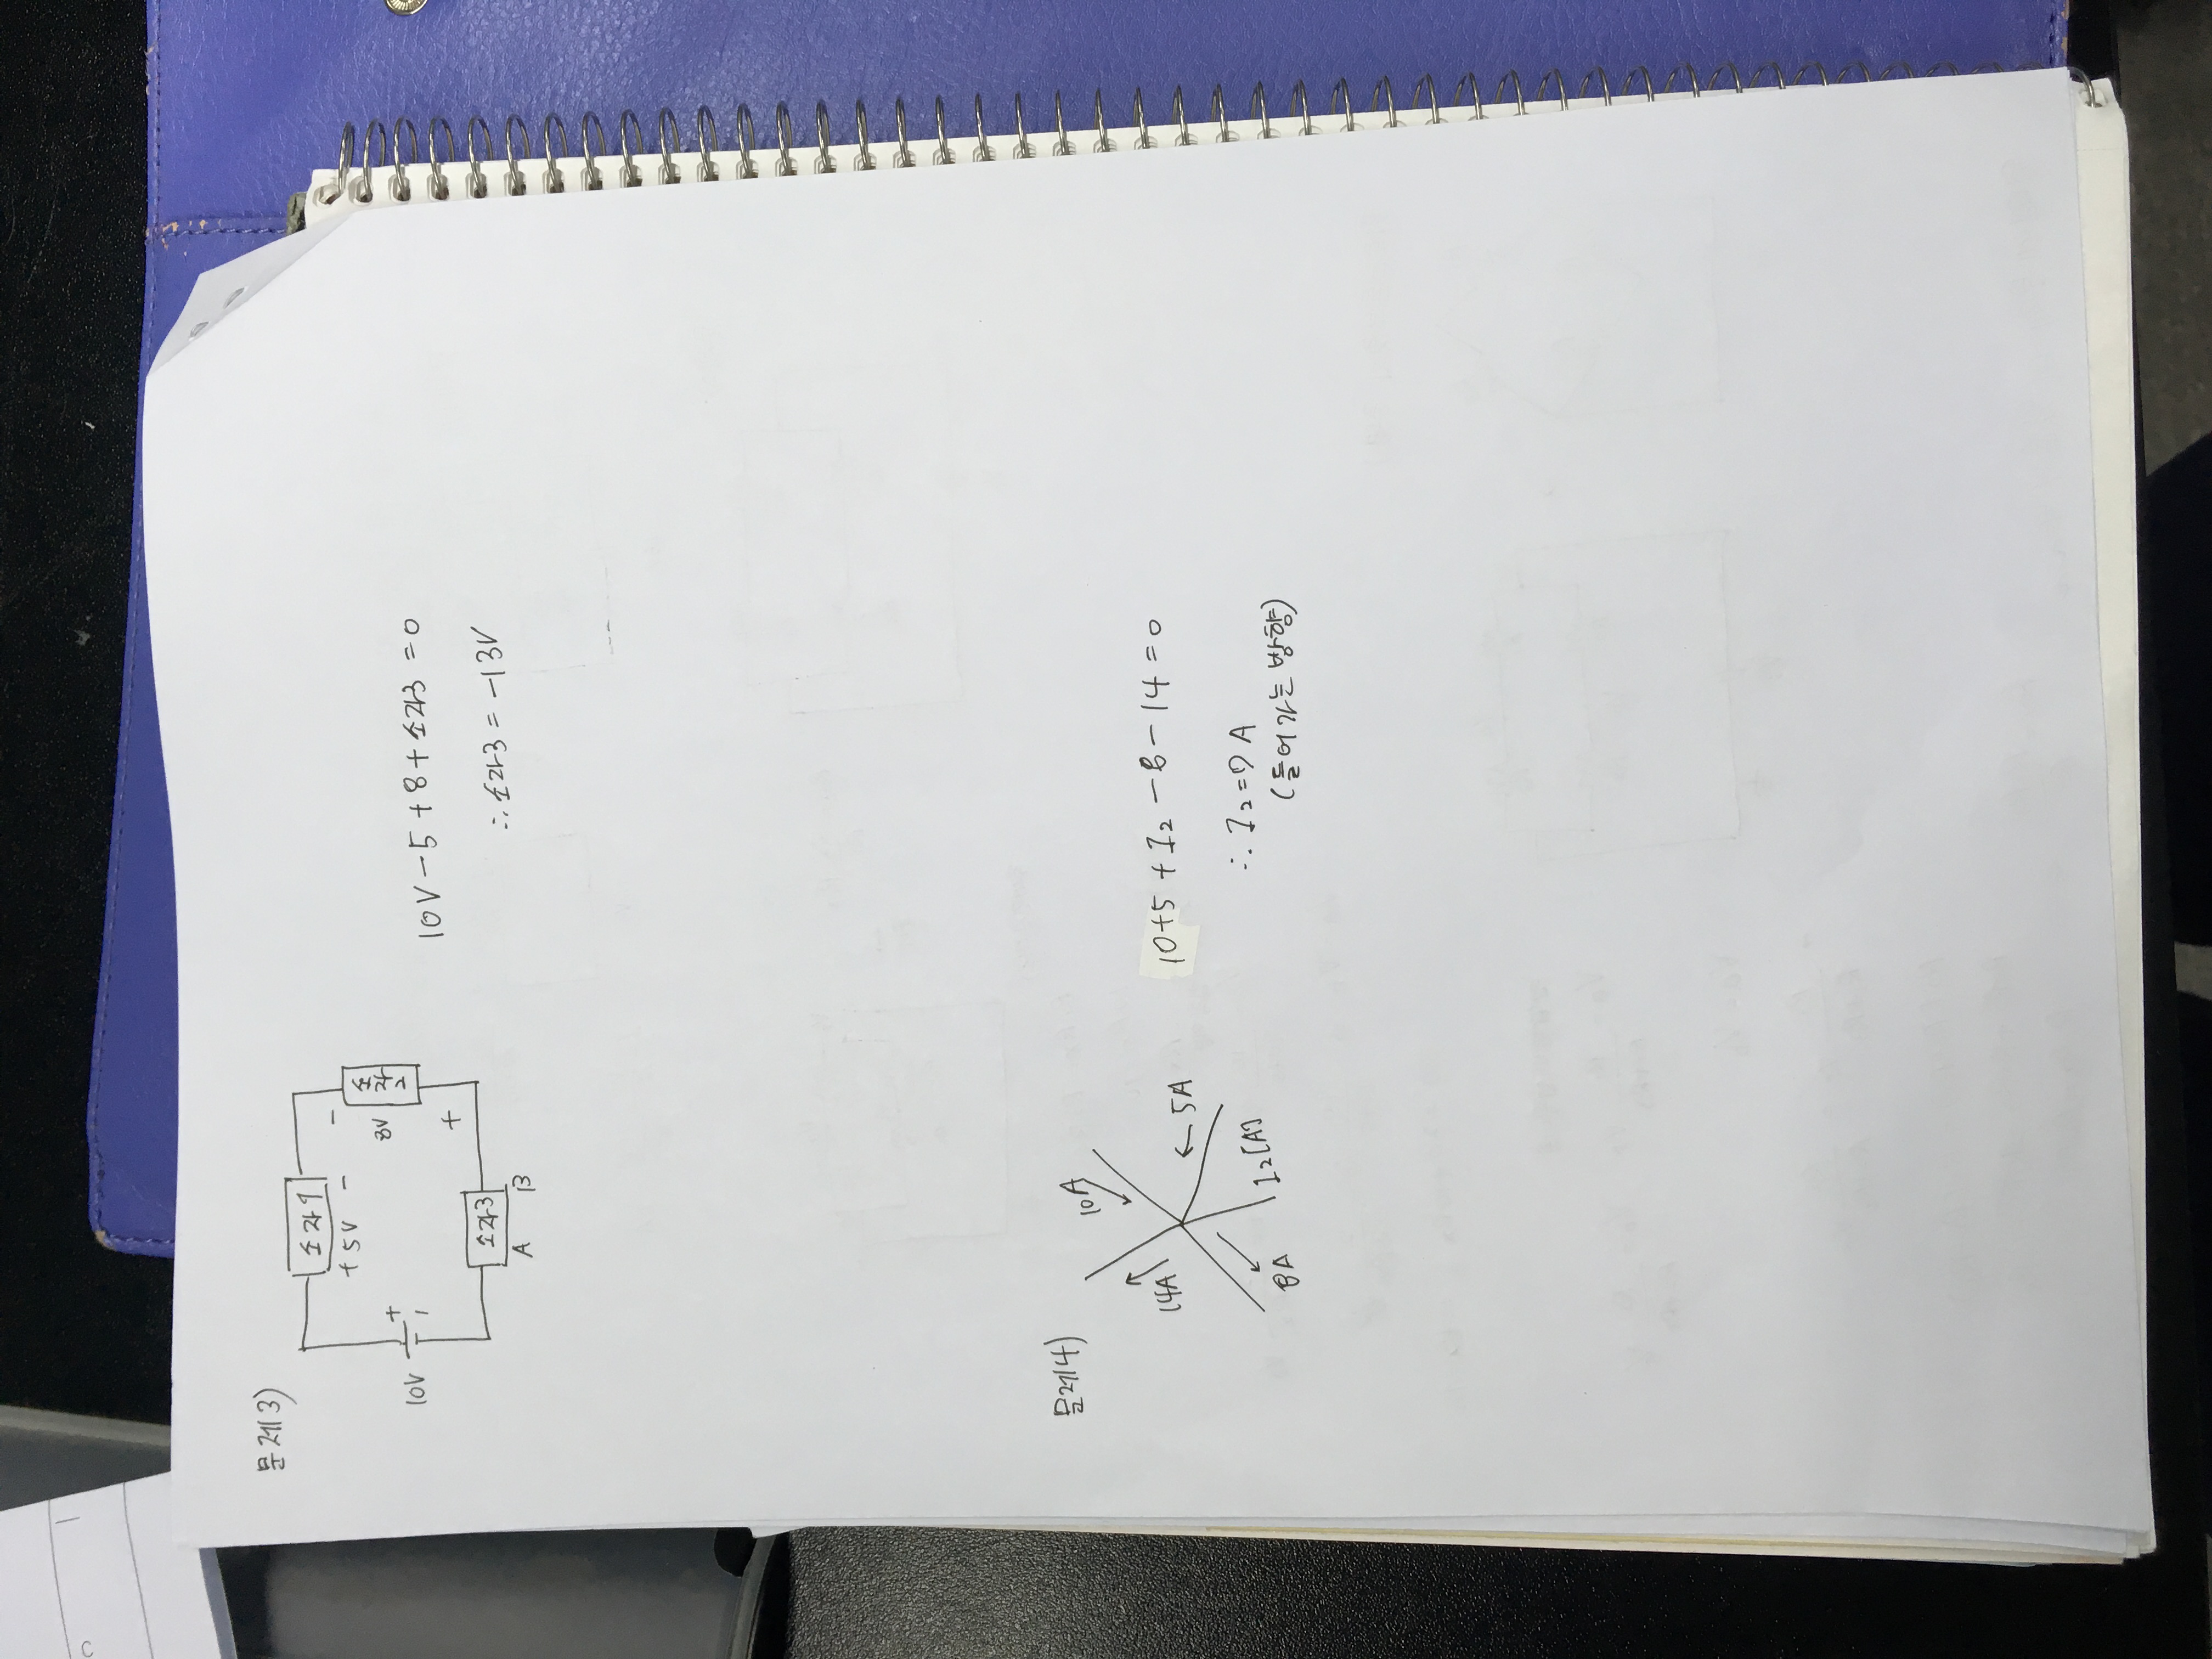 문제3)
소자1
+ 5V -
-
8V
소자2
+
10V
+
-
소자3
A B
10V - 5 + 8 + 소자3 = 0
∴ 소자3 = -13V
문제4)
10A
14A
← 5A
8A
I₂[A]
10+5 + I₂ - 8 - 14 = 0
∴ I₂ = 7 A
(들어가는 방향)